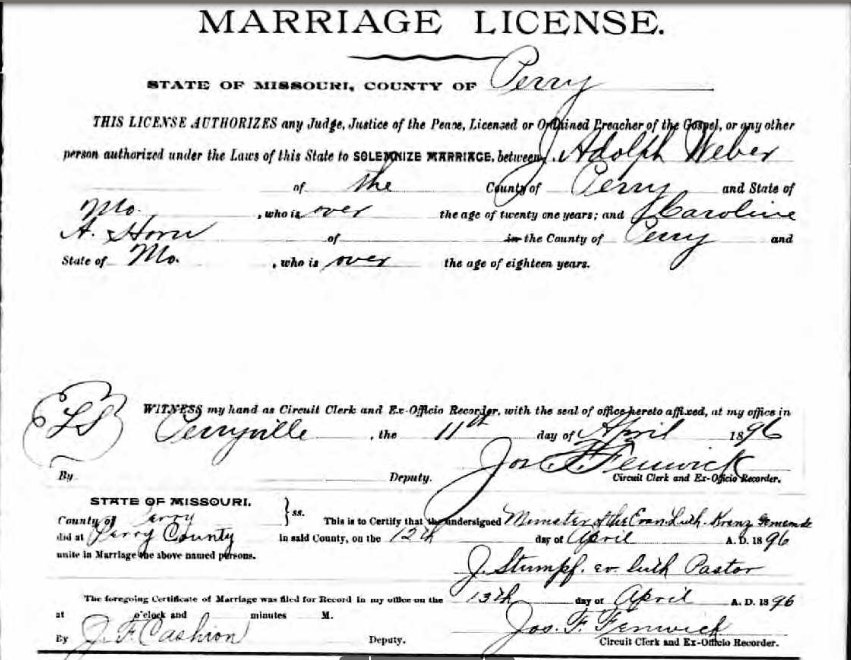 MARRIAGE LICENSE.
STATE OF MISSOURI, COUNTY OF Perry
THIS LICENSE AUTHORIZES any Judge, Justice of the Peace, Licensed or Ordained Preacher of the Gospel, or any other
person authorized under the Laws of this State to SOLEMNIZE MARRIAGE, between J. Adolph Weber
of the County of Perry and State of
Mo. , who is over the age of twenty one years; and Caroline
A. Horn of in the County of Perry and
State of Mo. , who is over the age of eighteen years.
LS WITNESS my hand as Circuit Clerk and Ex-Officio Recorder, with the seal of office hereto affixed, at my office in
Perryville , the 11th day of April 1896
Jos. F. Fenwick
By Deputy. Circuit Clerk and Ex-Officio Recorder.
STATE OF MISSOURI.
County of Perry ss. This is to Certify that the undersigned Minister of the Evan. Luth.
did at Perry County in said County, on the 12th day of April A. D. 1896
unite in Marriage the above named persons.
J. Stumpf. ev. luth Pastor
The foregoing Certificate of Marriage was filed for Record in my office on the 13th day of April A. D. 1896
at o'clock and minutes M.
Jos. F. Fenwick
By J. F. Cashion Deputy. Circuit Clerk and Ex-Officio Recorder.